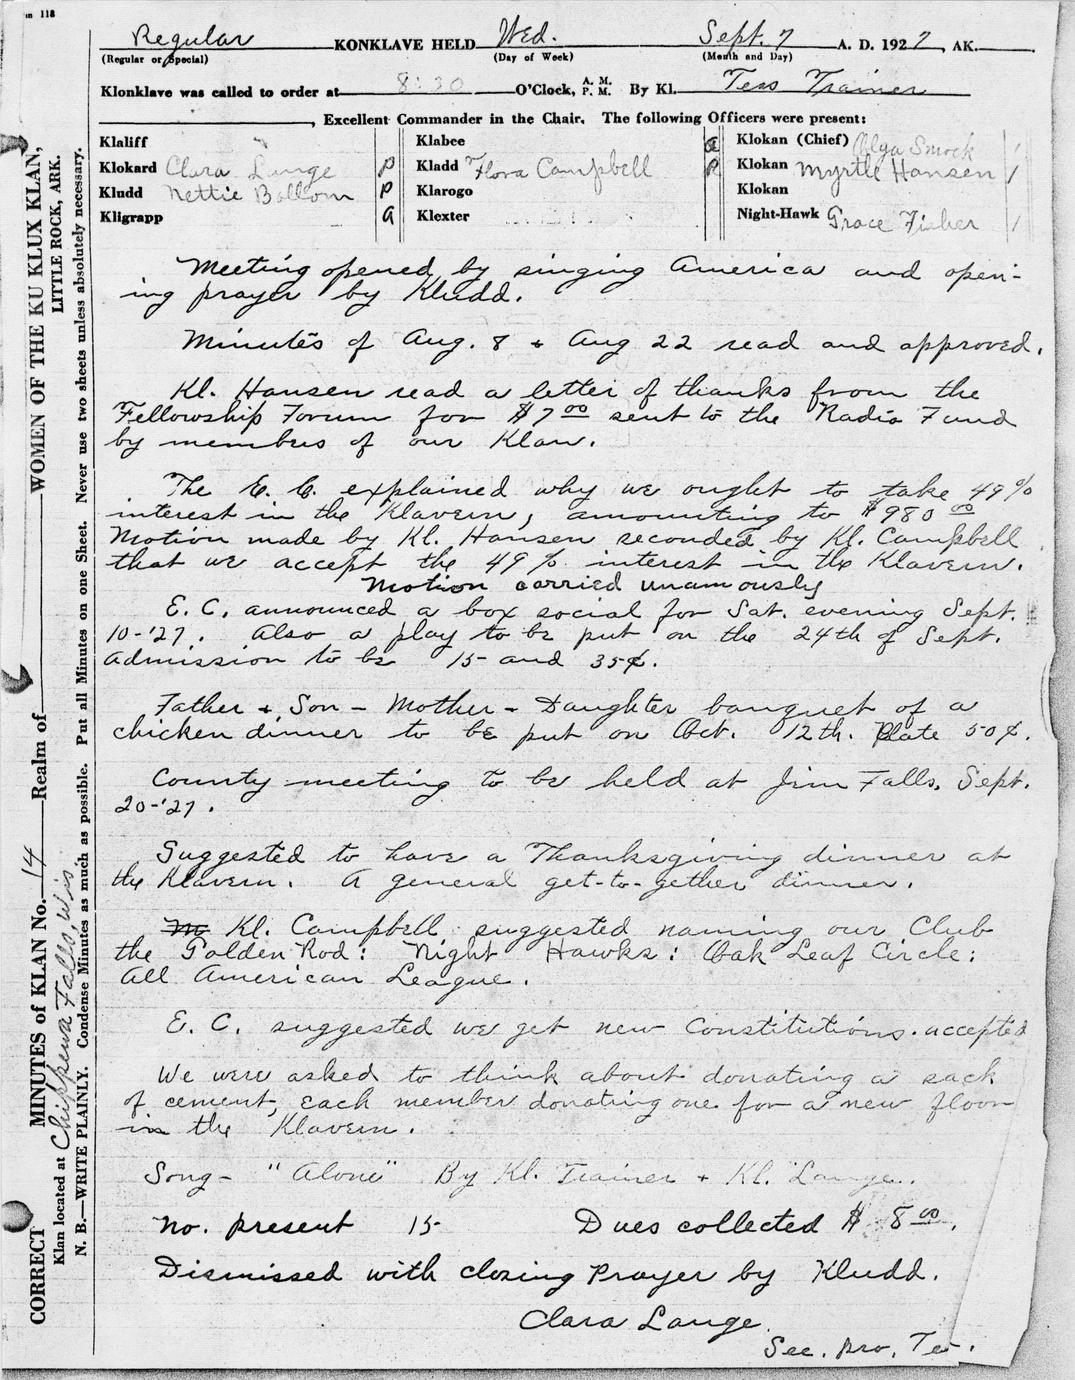 m 118
Regular KONKLAVE HELD Wed. Sept. 7 A. D. 1927, AK.
(Regular or Special) (Day of Week) (Month and Day)
Klonklave was called to order at 8:30 O'Clock, A. M. P. M. By Kl. Tess Trainer
, Excellent Commander in the Chair. The following Officers were present:
Klaliff Klabee a Klokan (Chief) Olga Smock /
Klokard Clara Lange P Kladd Flora Campbell P Klokan Myrtle Hansen /
Kludd Nettie Bollom P Klarogo Klokan
Kligrapp a Klexter Night-Hawk Grace Fisher /
Meeting opened by singing America and open-
ing prayer by Kludd.
Minutes of Aug. 8 + Aug 22 read and approved.
Kl. Hansen read a letter of thanks from the
Fellowship Forum for $7 00 sent to the Radio Fund
by members of our Klan.
The E. C. explained why we ought to take 49%
interest in the Klavern, amounting to $980 00
Motion made by Kl. Hansen seconded by Kl. Campbell
that we accept the 49% interest in the Klavern.
Motion carried unamously
E. C. announced a box social for Sat. evening Sept.
10-'27. Also a play to be put on the 24th of Sept.
Admission to be 15 and 35¢.
Father + Son - Mother - Daughter banquet of a
chicken dinner to be put on Oct. 12th. Plate 50¢.
County meeting to be held at Jim Falls, Sept.
20-'27.
Suggested to have a Thanksgiving dinner at
the Klavern. A general get-to-gether dinner.
M Kl. Campbell suggested naming our Club
the Golden Rod: Night Hawks: Oak Leaf Circle:
All American League.
E. C. suggested we get new Constitutions. accepted
We were asked to think about donating a sack
of cement, each member donating one for a new floor
in the Klavern.
Song- "Alone" By Kl. Trainer + Kl. Lange.
No. present 15 Dues collected $8 00.
Dismissed with closing Prayer by Kludd.
Clara Lange
Sec. Pro. Te
CORRECT MINUTES of KLAN No. 14 Realm of WOMEN OF THE KU KLUX KLAN,
Klan located at Chippewa Falls, Wis LITTLE ROCK, ARK.
N. B.—WRITE PLAINLY. Condense Minutes as much as possible. Put all Minutes on one Sheet. Never use two sheets unless absolutely necessary.